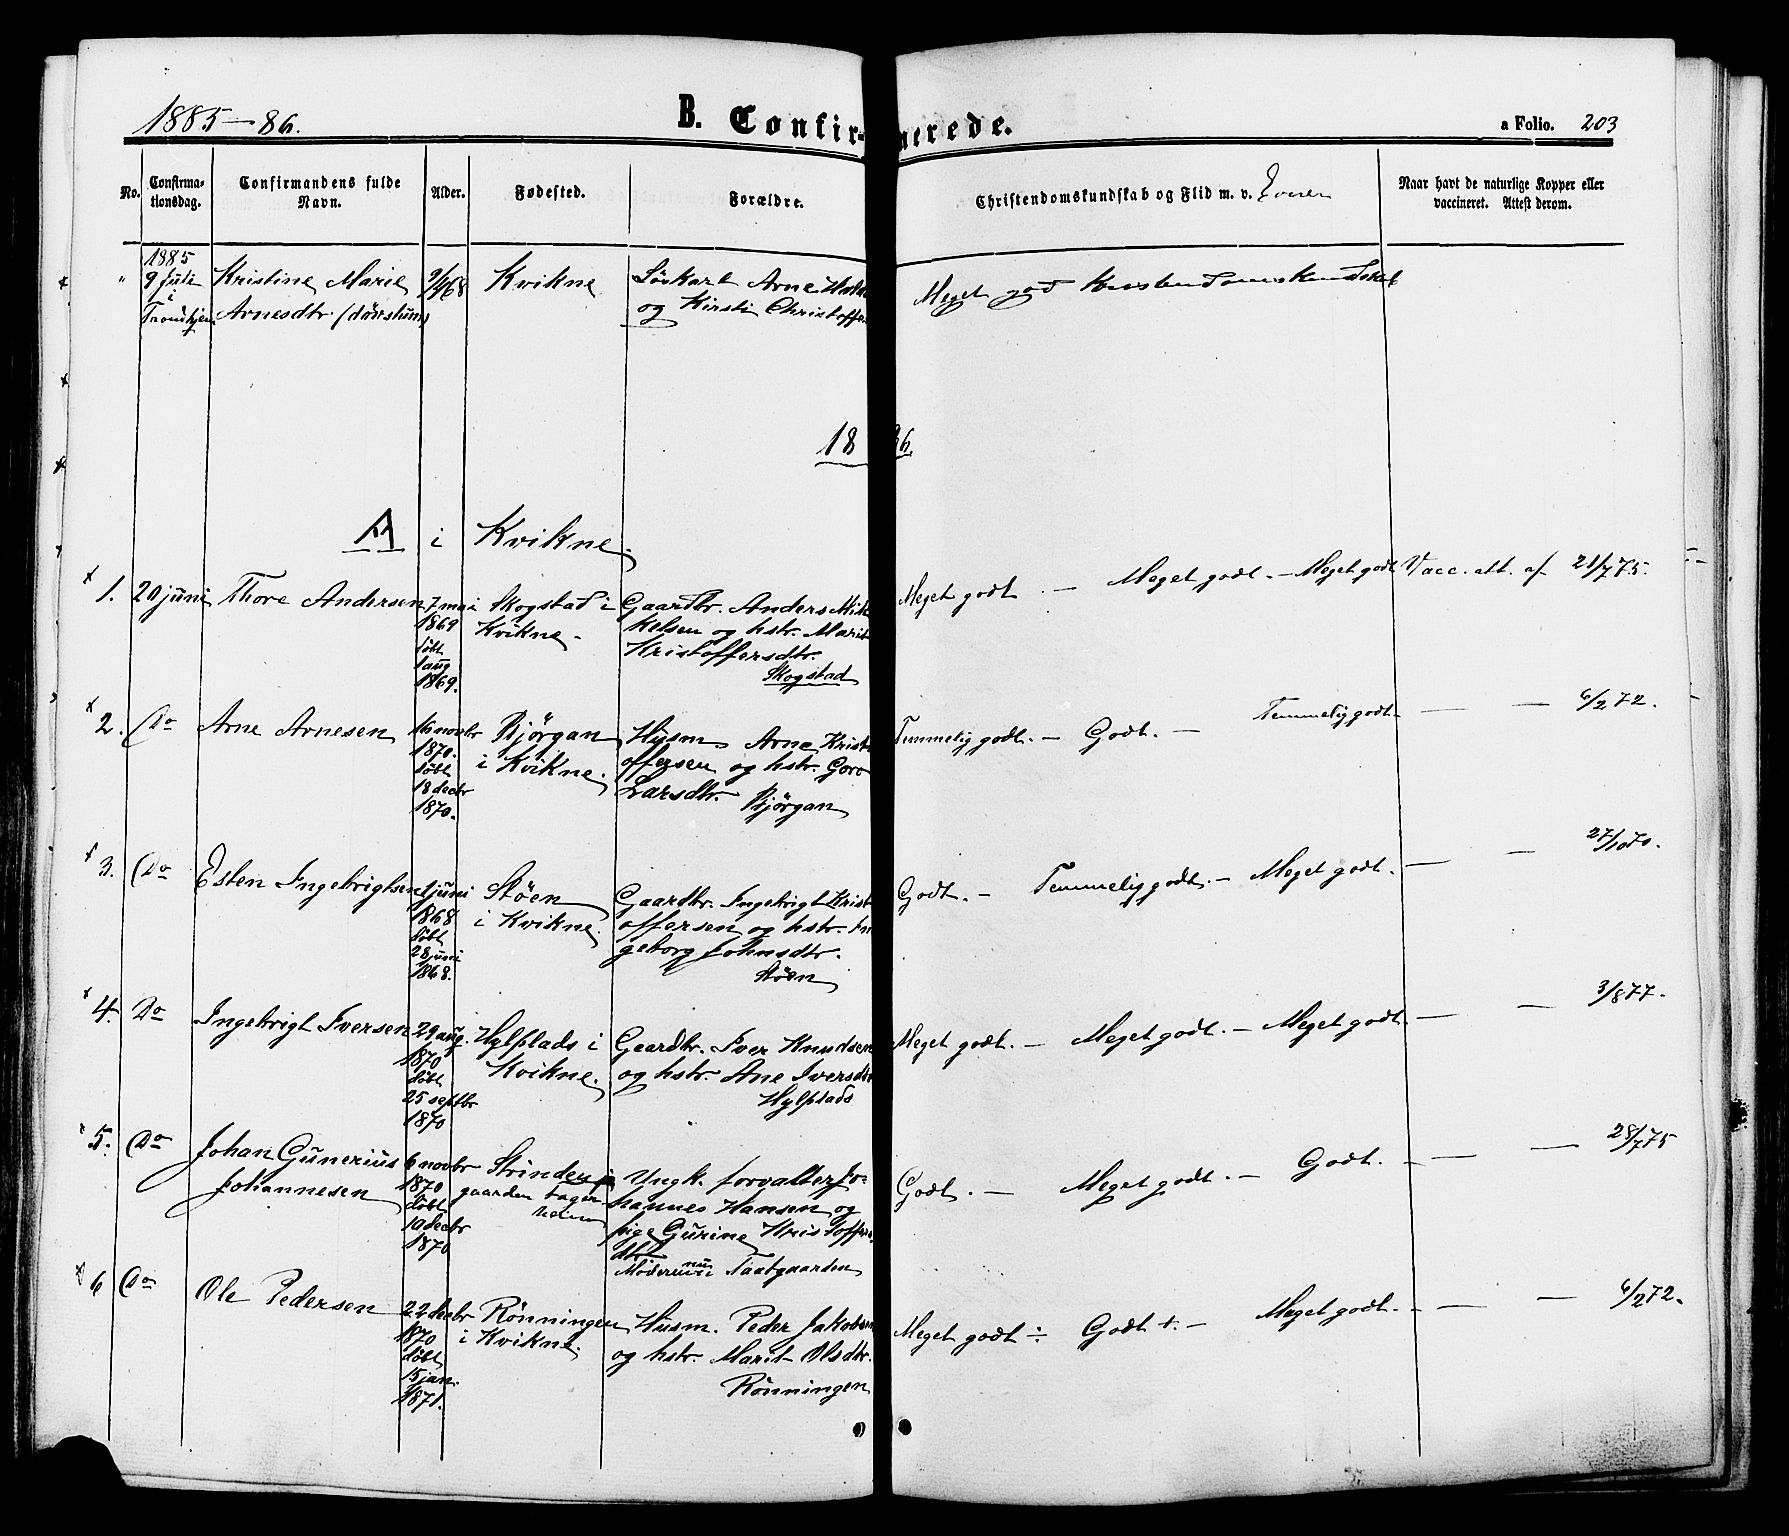 1885-86.
B. Confirmerede.
a Folio. 203
No.
Confirma-
tionsdag.
Confirmandens fulde
Navn.
Alder.
Fødested.
Forældre.
Christendomskundskab og Flid m. v.
Naar havt de naturlige Kopper eller
vaccineret. Attest derom.
" 1885
9 Juli
i
Trondhjem
Kristine Marie
Arnesdtr. (døvstum)
9/4 68
Kvikne
Arne
og Kirsti Christoffe
Meget god Kristendomskundskab
1886.
A i Kvikne.
1. 20 juni Thore Andersen
7 mai
1869
døbt
1 aug
1869.
Skogstad i
Kvikne.
Gaardbr. Anders Mik
kelsen og hstr. Marit
Kristoffersdtr.
Skogstad
Meget godt. — Meget godt. — Meget godt. Vacc. att. af 21/7 75.
2. Do Arne Arnesen
16 novbr
1870.
døbt
18 decbr
1870.
Bjørgan
i Kvikne.
Husm. Arne Krist
offersen og hstr. Goro
Larsdtr. Bjørgan
Temmelig godt. — Godt. — Temmelig godt. — — 6/2 72.
3. Do Esten Ingebrigtsen
1 juni
1868
døbt
28 juni
1868.
Støen
i Kvikne.
Gaardbr. Ingebrigt Krist
offersen og hstr. In
geborg Johnsdtr.
Støen
Godt. — Temmelig godt. — Meget godt. — — 27/10 70.
4. Do Ingebrigt Iversen
29 aug.
1870
døbt
25 septbr
1870
Hylplads i
Kvikne.
Gaardbr. Iver Knudsen
og hstr. Ane Iversdtr
Hylplads
Meget godt. — Meget godt. — Meget godt. — — 3/8 77.
5. Do Johan Gunerius
Johannesen
6 novbr
1870
døbt
10 decbr
1870
gaarden
Ungk. forvalter Jo-
hannes Hansen og
pige Gurine Kristoffers
dtr
Moderen nu i Taatgaarden
Godt. — Meget godt. — Godt. — — 28/7 75
6 Do Ole Pedersen
22 decbr
1870
døbt
15 jan.
1871.
Rønningen
i Kvikne.
Husm. Peder Jakobsen
og hstr. Marit Olsdtr.
Rønningen
Meget godt ÷ Godt +. — Meget godt. — — 6/2 72.